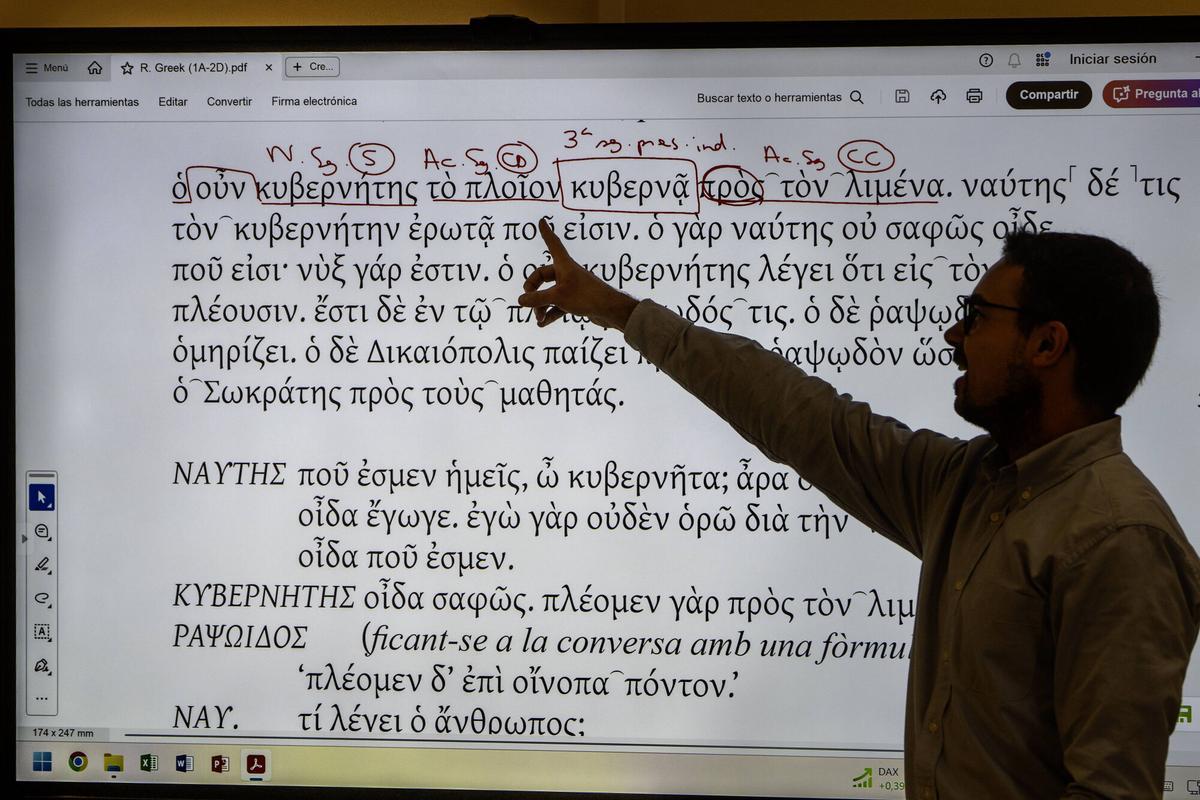 Menú R. Greek (1A-2D).pdf × + Cre... Iniciar sesión
Todas las herramientas Editar Convertir Firma electrónica Buscar texto o herramientas Compartir Pregunta al
3ª sg. pres. ind.
N. Sg. S Ac. Sg. CD Ac. Sg CC
ὁ οὖν κυβερνήτης τὸ πλοῖον κυβερνᾷ πρὸς͡ τὸν͡ λιμένα. ναύτης⸢ δέ ⸣τις
τὸν͡ κυβερνήτην ἐρωτᾷ ποῦ εἰσιν. ὁ γὰρ ναύτης οὐ σαφῶς οἶδε
ποῦ εἰσι· νὺξ γάρ ἐστιν. ὁ κυβερνήτης λέγει ὅτι εἰς͡ τὸν
πλέουσιν. ἔστι δὲ ἐν τῷ͡ τις. ὁ δὲ ῥαψῳδ
ὁμηρίζει. ὁ δὲ Δικαιόπολις παίζει ῥαψῳδὸν ὥσ
ὁ͡ Σωκράτης πρὸς τοὺς͡ μαθητάς.
ΝΑΥΤΗΣ ποῦ ἐσμεν ἡμεῖς, ὦ κυβερνῆτα; ἆρα
οἶδα ἔγωγε. ἐγὼ γὰρ οὐδὲν ὁρῶ διὰ τὴν
οἶδα ποῦ ἐσμεν.
ΚΥΒΕΡΝΗΤΗΣ οἶδα σαφῶς. πλέομεν γὰρ πρὸς τὸν͡ λιμ
ΡΑΨΩΙΔΟΣ (ficant-se a la conversa amb una fòrmul
‘πλέομεν δ’ ἐπὶ οἴνοπα͡ πόντον.’
ΝΑΥ. τί λέγει ὁ ἄνθρωπος;
174 x 247 mm
DAX
+0,39